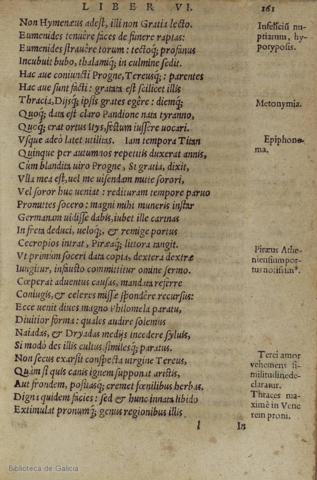 LIBER VI. 161
Non Hymenæus adest, illi non Gratia lecto.
Eumenides tenuêre faces de funere raptas:
Eumenides strauêre torum: tectoq; profanus
Incubuit bubo, thalamiq; in culmine sedit.
Hac aue coniuncti Progne, Tereusq;: parentes
Hac aue sunt facti: gratata est scilicet illis
Thracia, Dijsq; ipsis grates egêre: diemq;
Quoq; data est claro Pandione nata tyranno,
Quoq; erat ortus Itys, festum iussêre uocari.
Vsque adeò latet utilitas. Iam tempora Titan
Quinque per autumnos repetiti duxerat anni,
Cum blandita uiro Progne, Si gratia, dixit,
Vlla mea est, uel me uisendam mitte sorori,
Vel soror huc ueniat: redituram tempore paruo
Promittes socero: magni mihi muneris instar
Germanam uidisse dabis, iubet ille carinas
In freta deduci, ueloq;, & remige portus
Cecropios intrat, Piræaq; littora tangit.
Vt primùm soceri data copia, dextera dextræ
Iungitur, infausto committitur omine sermo.
Cœperat aduentus causas, mandata referre
Coniugis, & celeres missæ spondêre recursus:
Ecce uenit diues magno Philomela paratu,
Diuitior forma: quales audire solemus
Naiadas, & Dryadas medijs incedere syluis,
Si modò des illis cultus, similesq; paratus.
Non secus exarsit conspecta uirgine Tereus,
Quàm si quis canis ignem supponat aristis,
Aut frondem, positasq; cremet fœnilibus herbas.
Digna quidem facies: sed & hunc innata libido
Extimulat pronumq; genus regionibus illis
l In
Infeliciū nu-
ptiarum, hy-
potyposis.
Metonymia.
Epiphone-
ma.
Piræus Athe-
niensium por-
tus
Terei amor
vehemens si-
militudine de-
claratur.
Thraces ma-
ximè in Vene
rem proni.
Biblioteca de Galicia